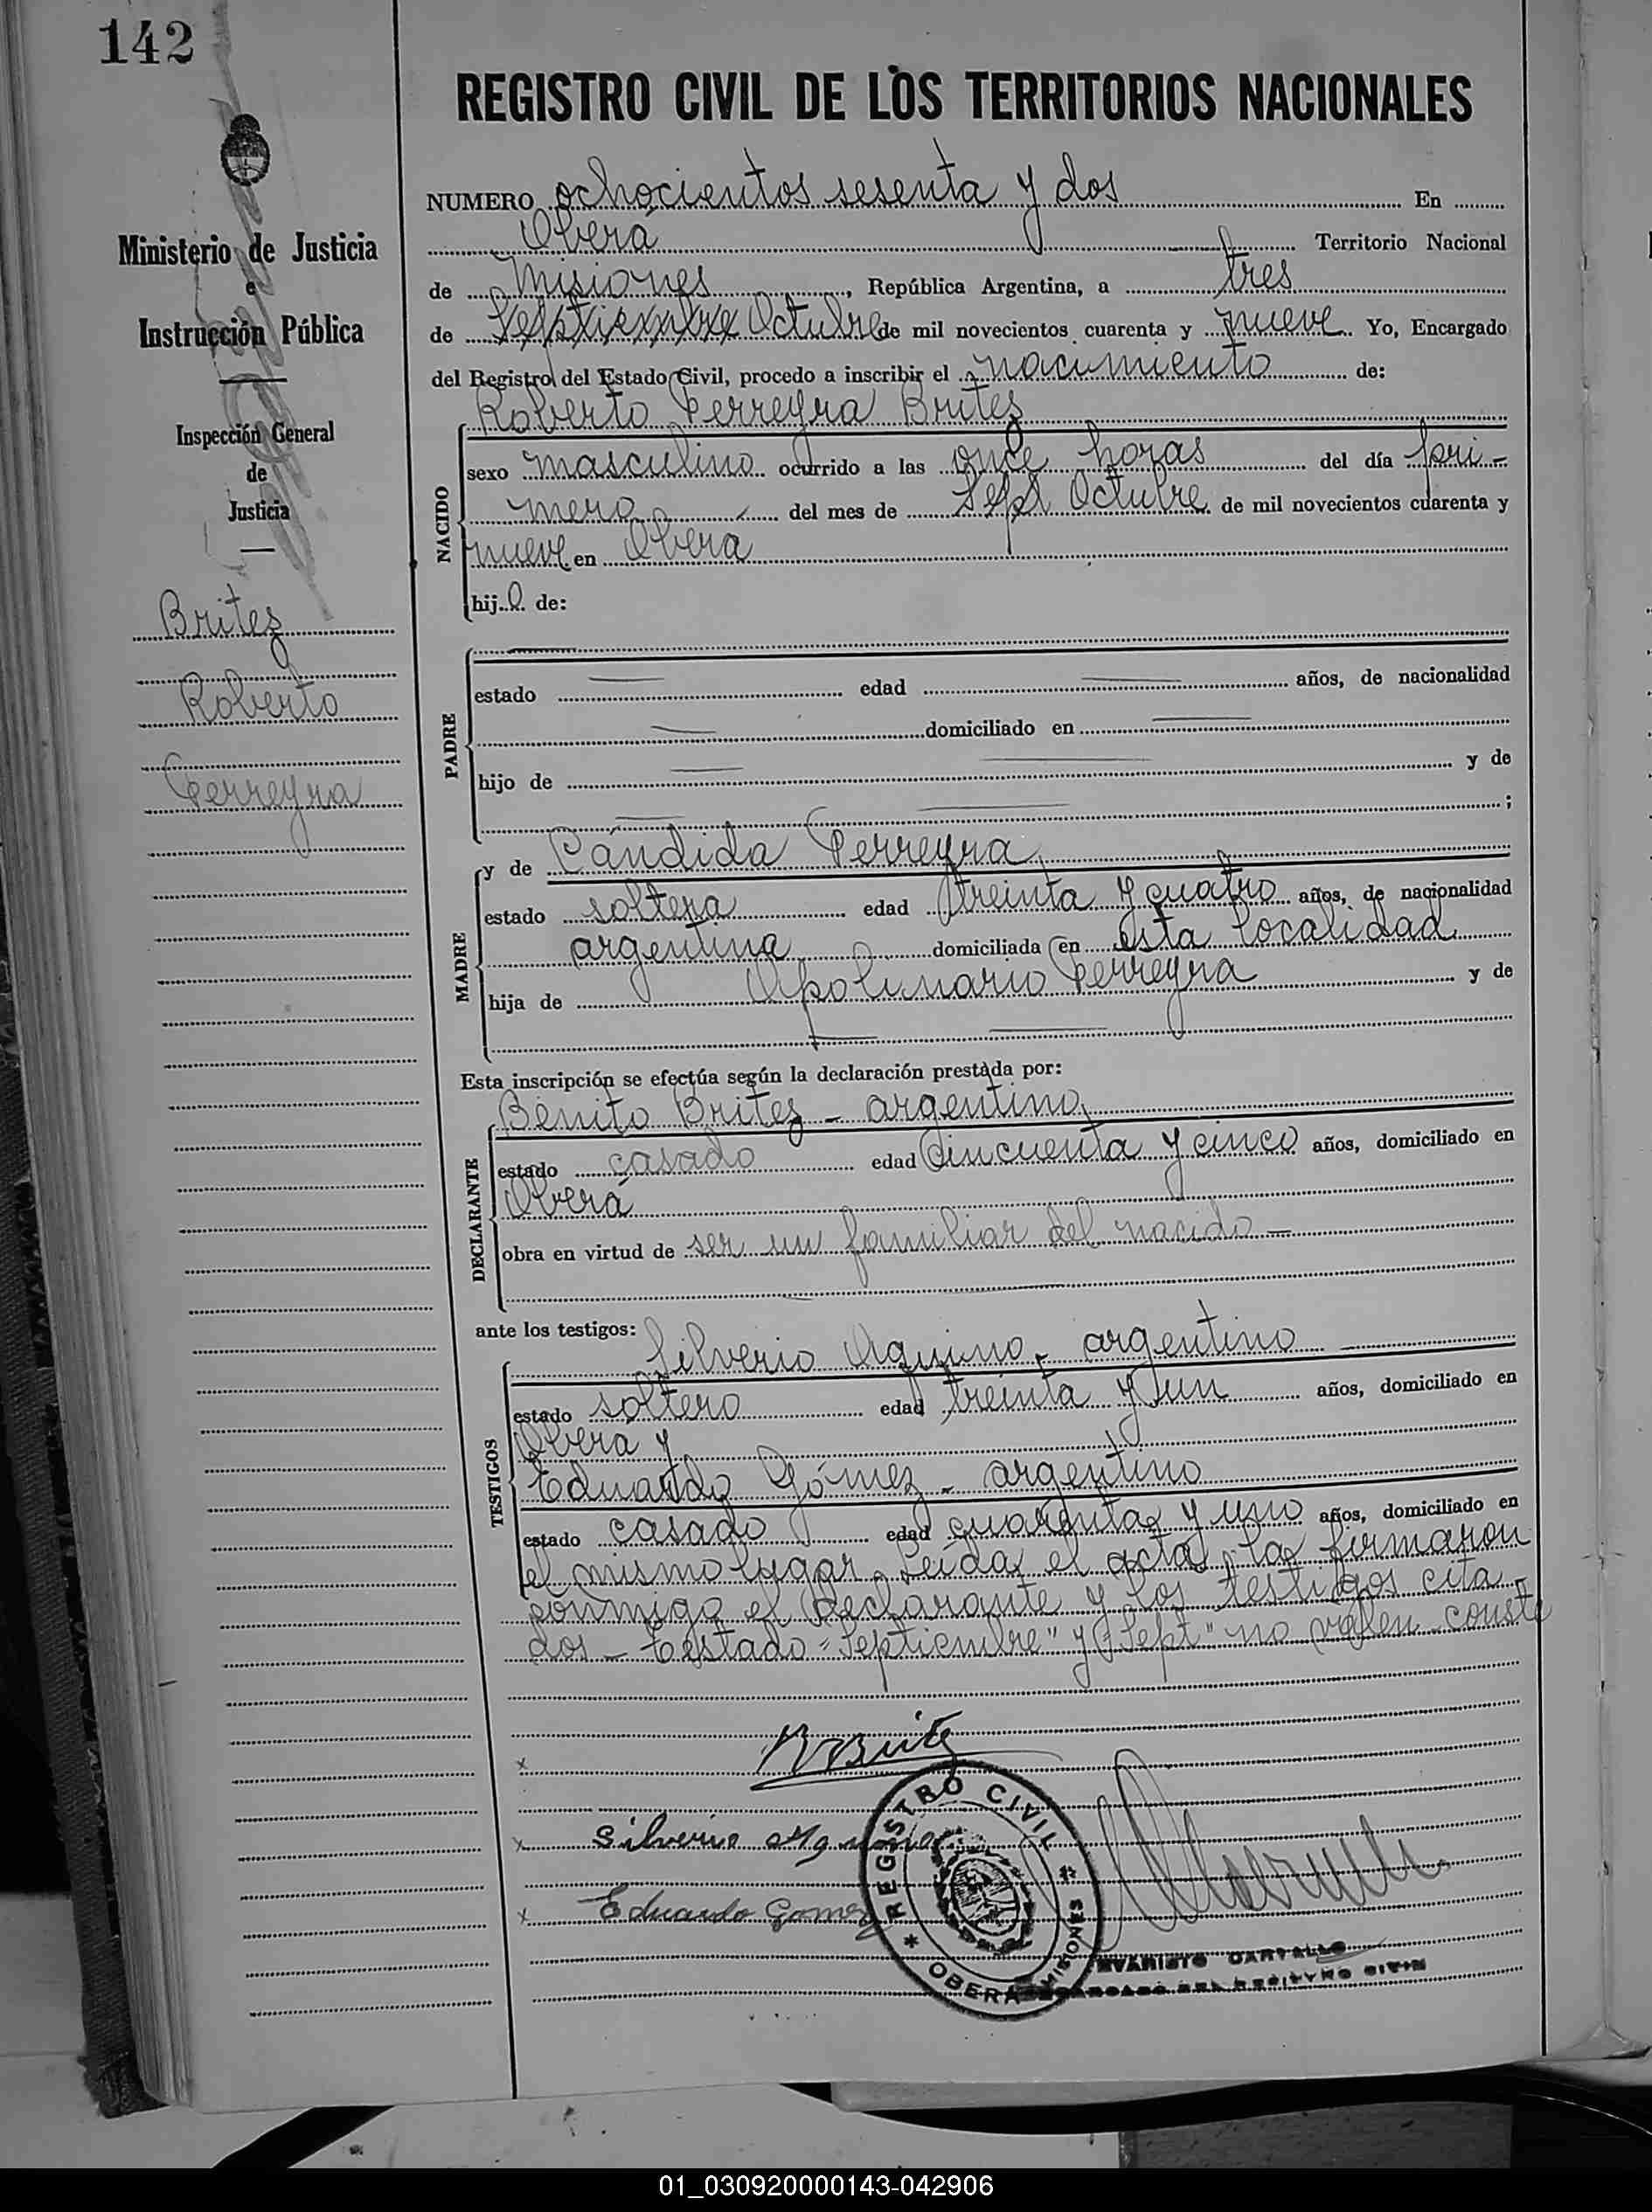 142
REGISTRO CIVIL DE LOS TERRITORIOS NACIONALES
Ministerio de Justicia
e
Instrucción Pública
Inspección General
de
Justicia
Britez
Roberto
Ferreyra
NUMERO ochocientos sesenta y dos En
Oberá Territorio Nacional
de Misiones, República Argentina, a tres
de Septiembre Octubre de mil novecientos cuarenta y nueve Yo, Encargado
del Registro del Estado Civil, procedo a inscribir el nacimiento de:
Roberto Ferreyra Britez
NACIDO
sexo masculino ocurrido a las once horas del día pri-
mero del mes de Sept Octubre de mil novecientos cuarenta y
nueve en Oberá
hijo de:
PADRE
estado edad años, de nacionalidad
domiciliado en
hijo de y de
;
MADRE
y de Cándida Ferreyra
estado soltera edad treinta y cuatro años, de nacionalidad
argentina domiciliada en esta localidad
hija de Apolinario Ferreyra y de
Esta inscripción se efectúa según la declaración prestada por:
DECLARANTE
Benito Britez - argentino
estado casado edad cincuenta y cinco años, domiciliado en
Oberá
obra en virtud de ser un familiar del nacido -
ante los testigos:
TESTIGOS
Silverio Aquino - argentino
estado soltero edad treinta y un años, domiciliado en
Oberá y
Eduardo Gómez - argentino
estado casado edad cuarenta y uno años, domiciliado en
el mismo lugar. Leída el acta, la firmaron
conmigo el declarante y los testigos cita-
dos - Testado "Septiembre" y "Sept" no valen - conste
x Britez
x Silverio Aquino
x Eduardo Gomez
REGISTRO CIVIL
* OBERA MISIONES *
EVARISTO
ENCARGADO DEL REGISTRO CIVIL
01_030920000143-042906